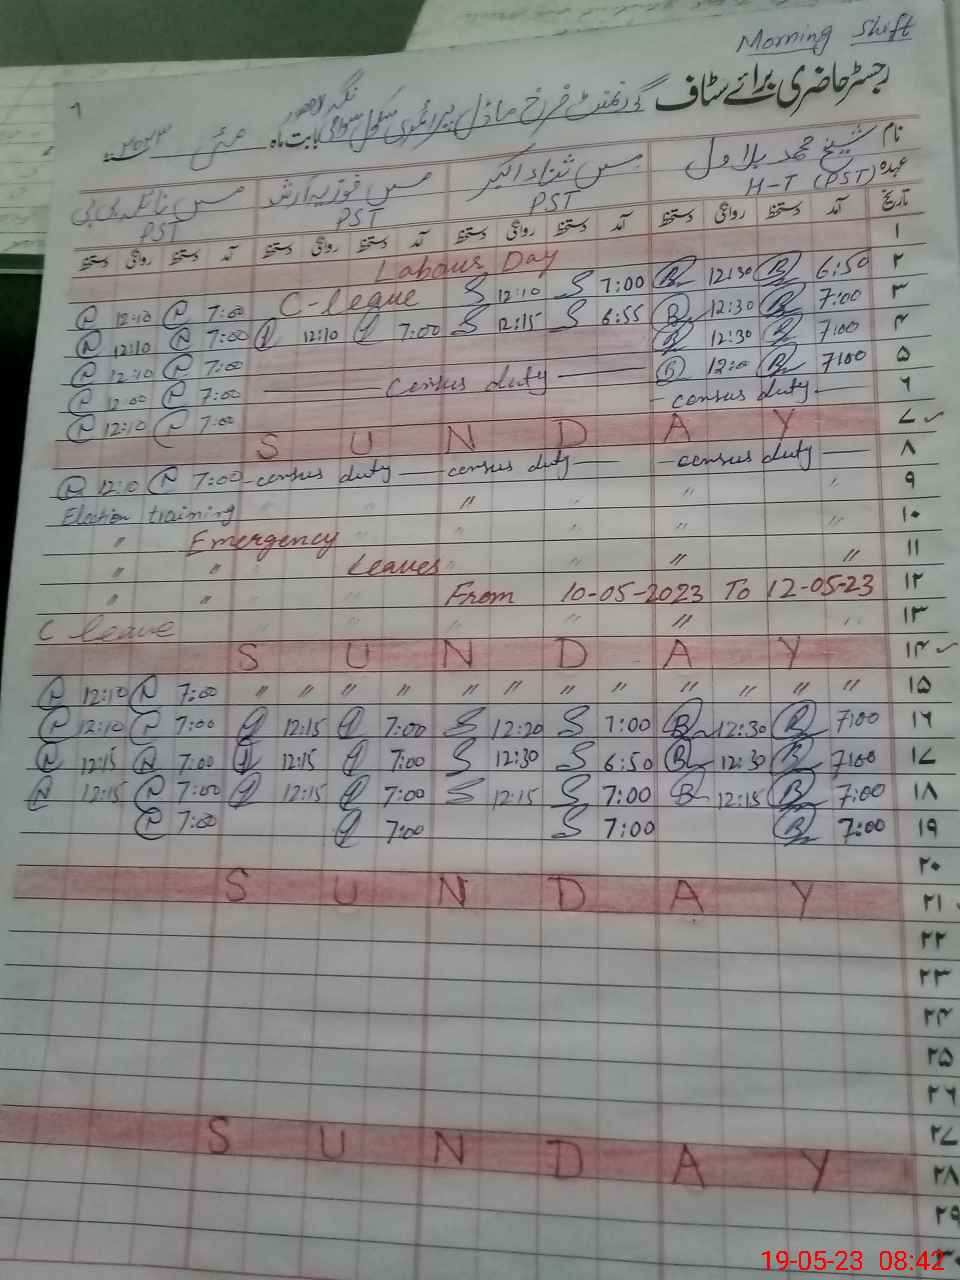 Morning Shift
رجسٹر حاضری برائے سٹاف گورنمنٹ فرخ ماڈل پرائمری سکول سوامی نگر لاہور بابت ماہ مئی ۲۰۲۳ء
نام شیخ محمد بلاول مس ثناء اکبر مس فوزیہ ارش مس نائلہ بی بی
عہدہ H-T (PST) PST PST PST
تاریخ آمد دستخط روانگی دستخط آمد دستخط روانگی دستخط آمد دستخط روانگی دستخط آمد دستخط روانگی دستخط
۱ Labour Day
۲ 6:50 B 12:30 B 7:00 S 12:10 S C-leave 7:00 N 12:10 N
۳ 7:00 B 12:30 B 6:55 S 12:15 S 7:00 12:10 7:00 N 12:10 N
۴ 7:00 B 12:30 B 7:00 N 12:10 N
۵ 7:00 B 12:0 B Census duty 7:00 N 12:00 N
۶ census duty 7:00 N 12:10 N
۷ SUNDAY
۸ census duty census duty census duty 7:00 N 12:10 N
۹ " " Election training
۱۰ " " Emergency "
۱۱ " " Leaves " "
۱۲ From 10-05-2023 To 12-05-23 " "
۱۳ " " C leave
۱۴ SUNDAY
۱۵ " " " " " " " " " " " " 7:00 N 12:10 N
۱۶ 7:00 B 12:30 B 7:00 S 12:20 S 7:00 12:15 7:00 N 12:10 N
۱۷ 7:00 B 12:30 B 6:50 S 12:30 S 7:00 12:15 7:00 N 12:15 N
۱۸ 7:00 B 12:15 B 7:00 S 12:15 S 7:00 12:15 7:00 N 12:15 N
۱۹ 7:00 B 7:00 S 7:00 7:00 N
۲۰
۲۱ SUNDAY
۲۲
۲۳
۲۴
۲۵
۲۶
۲۷
۲۸ SUNDAY
۲۹
۳۰
19-05-23 08:42